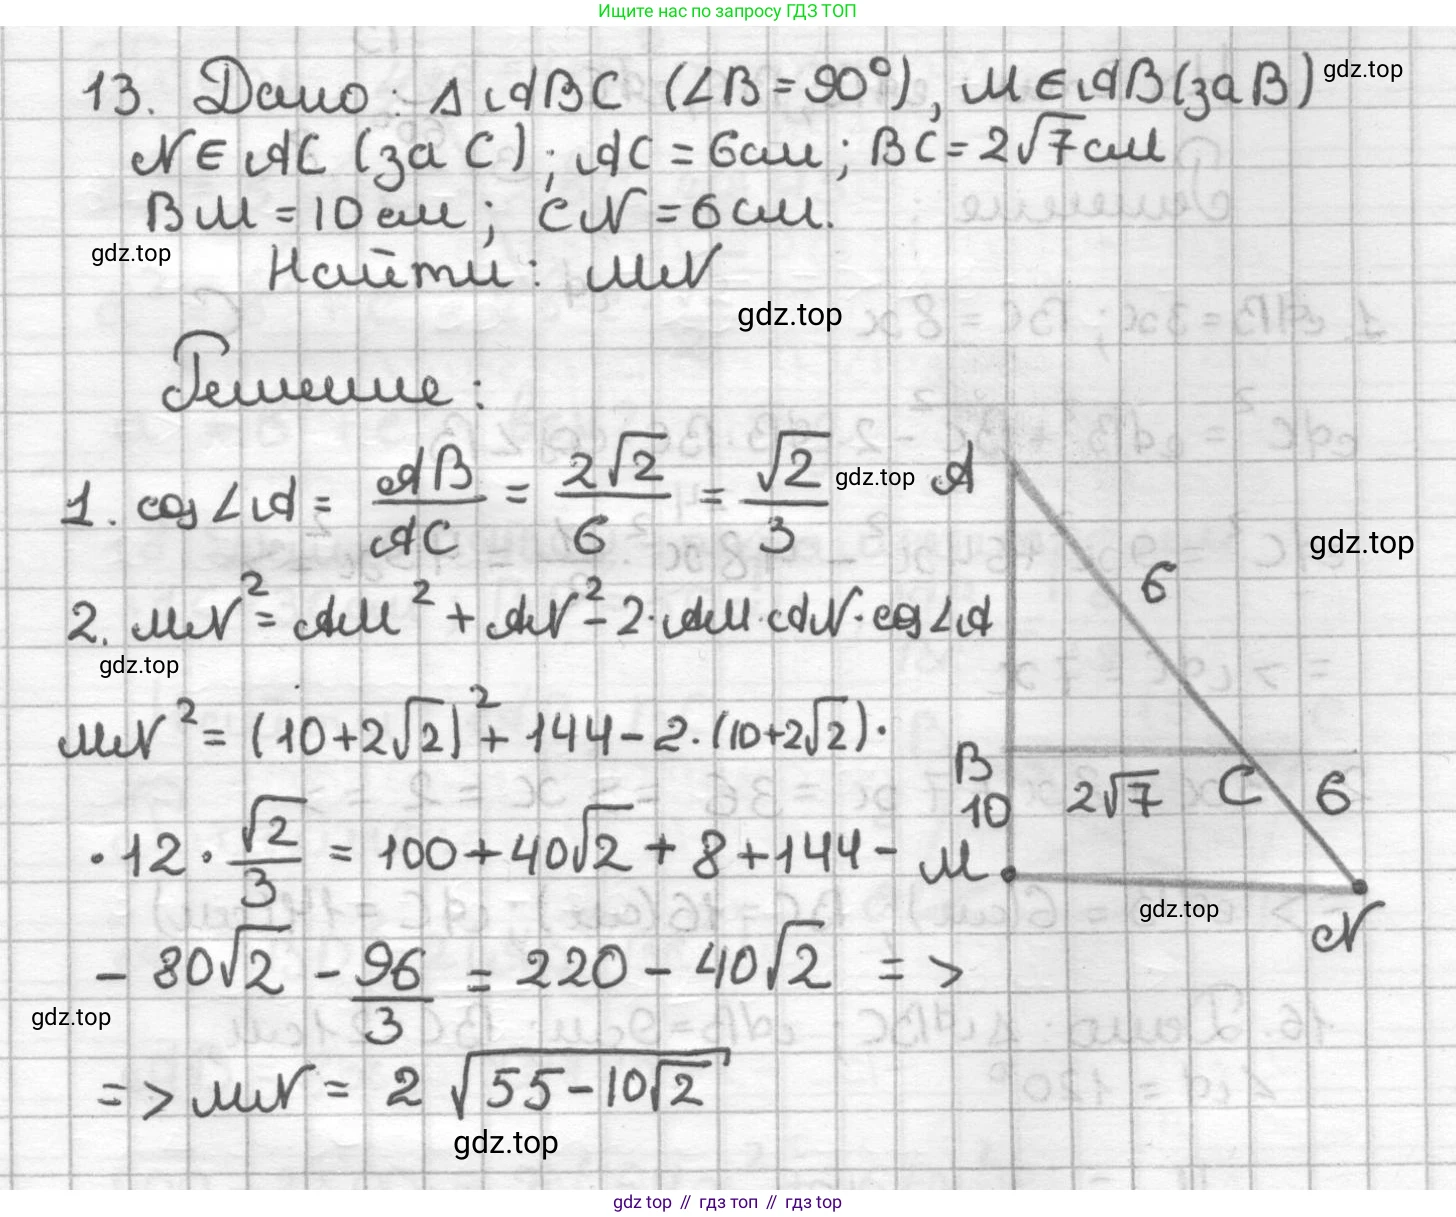 Ищите нас по запросу ГДЗ ТОП
13. Дано: Δ ABC (∠B = 90°), M ∈ AB (за B) gdz.top
N ∈ AC (за C); AC = 6 см; BC = 2√7 см
BM = 10 см; CN = 6 см.
gdz.top
Найти: MN
gdz.top
Решение:
1. cos∠A = AB/AC = 2√2/6 = √2/3 gdz.top
A
gdz.top
6
2. MN² = AM² + AN² - 2·AM·AN·cos∠A
gdz.top
MN² = (10+2√2)² + 144 - 2·(10+2√2)·
B
10
2√7 C 6
·12·√2/3 = 100+40√2 + 8+144 -
M
gdz.top
N
- 80√2 - 96/3 = 220 - 40√2 =>
gdz.top
=> MN = 2√(55-10√2)
gdz.top
gdz top // гдз топ // gdz top